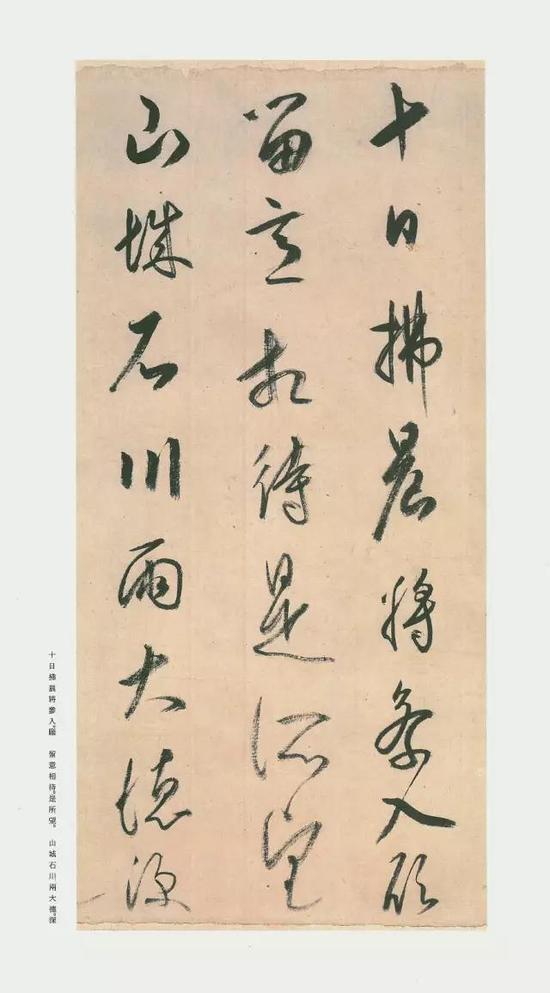 十日拂晨将参入願
留意相待是所望
山城石川両大徳深
十日拂晨將參入。願　留意相待。是所望。　山城石川兩大德。深